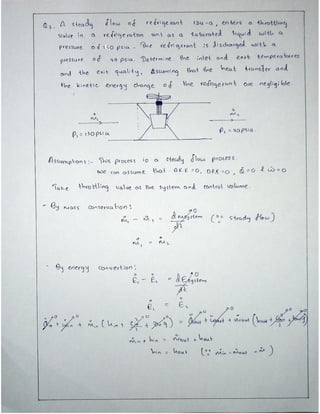 Q3. A steady flow of refrigerant 134-a, enters a throttling
valve in a refrigeration unit as a saturated liquid with a
pressure of 150 psia. The refrigerant is discharged with a
pressure of 20 psia. Determine the inlet and exit temperatures
and the exit quality, Assuming that the heat transfer and
the kinetic energy change of the refrigerant are negligible.
ṁ₁
ṁ₂
P₁ = 150 psia
P₂ = 20 psia
Assumptions :- This process is a steady flow process.
we can assume that ΔKE = 0, ΔPE = 0, Q̇ = 0 & ẇ = 0
Take throttling valve as the system and control volume.
- By mass conservation :
ṁ₁ - ṁ₂ = dmsystem / dt →0 (∵ steady flow)
ṁ₁ = ṁ₂
- By energy convertion :
Ė₁ - Ė₂ = dEsystem / dt →0
Ė₁ = Ė₂
ṁin × hin = ṁout × hout
hin = hout (∵ ṁin = ṁout = ṁ)